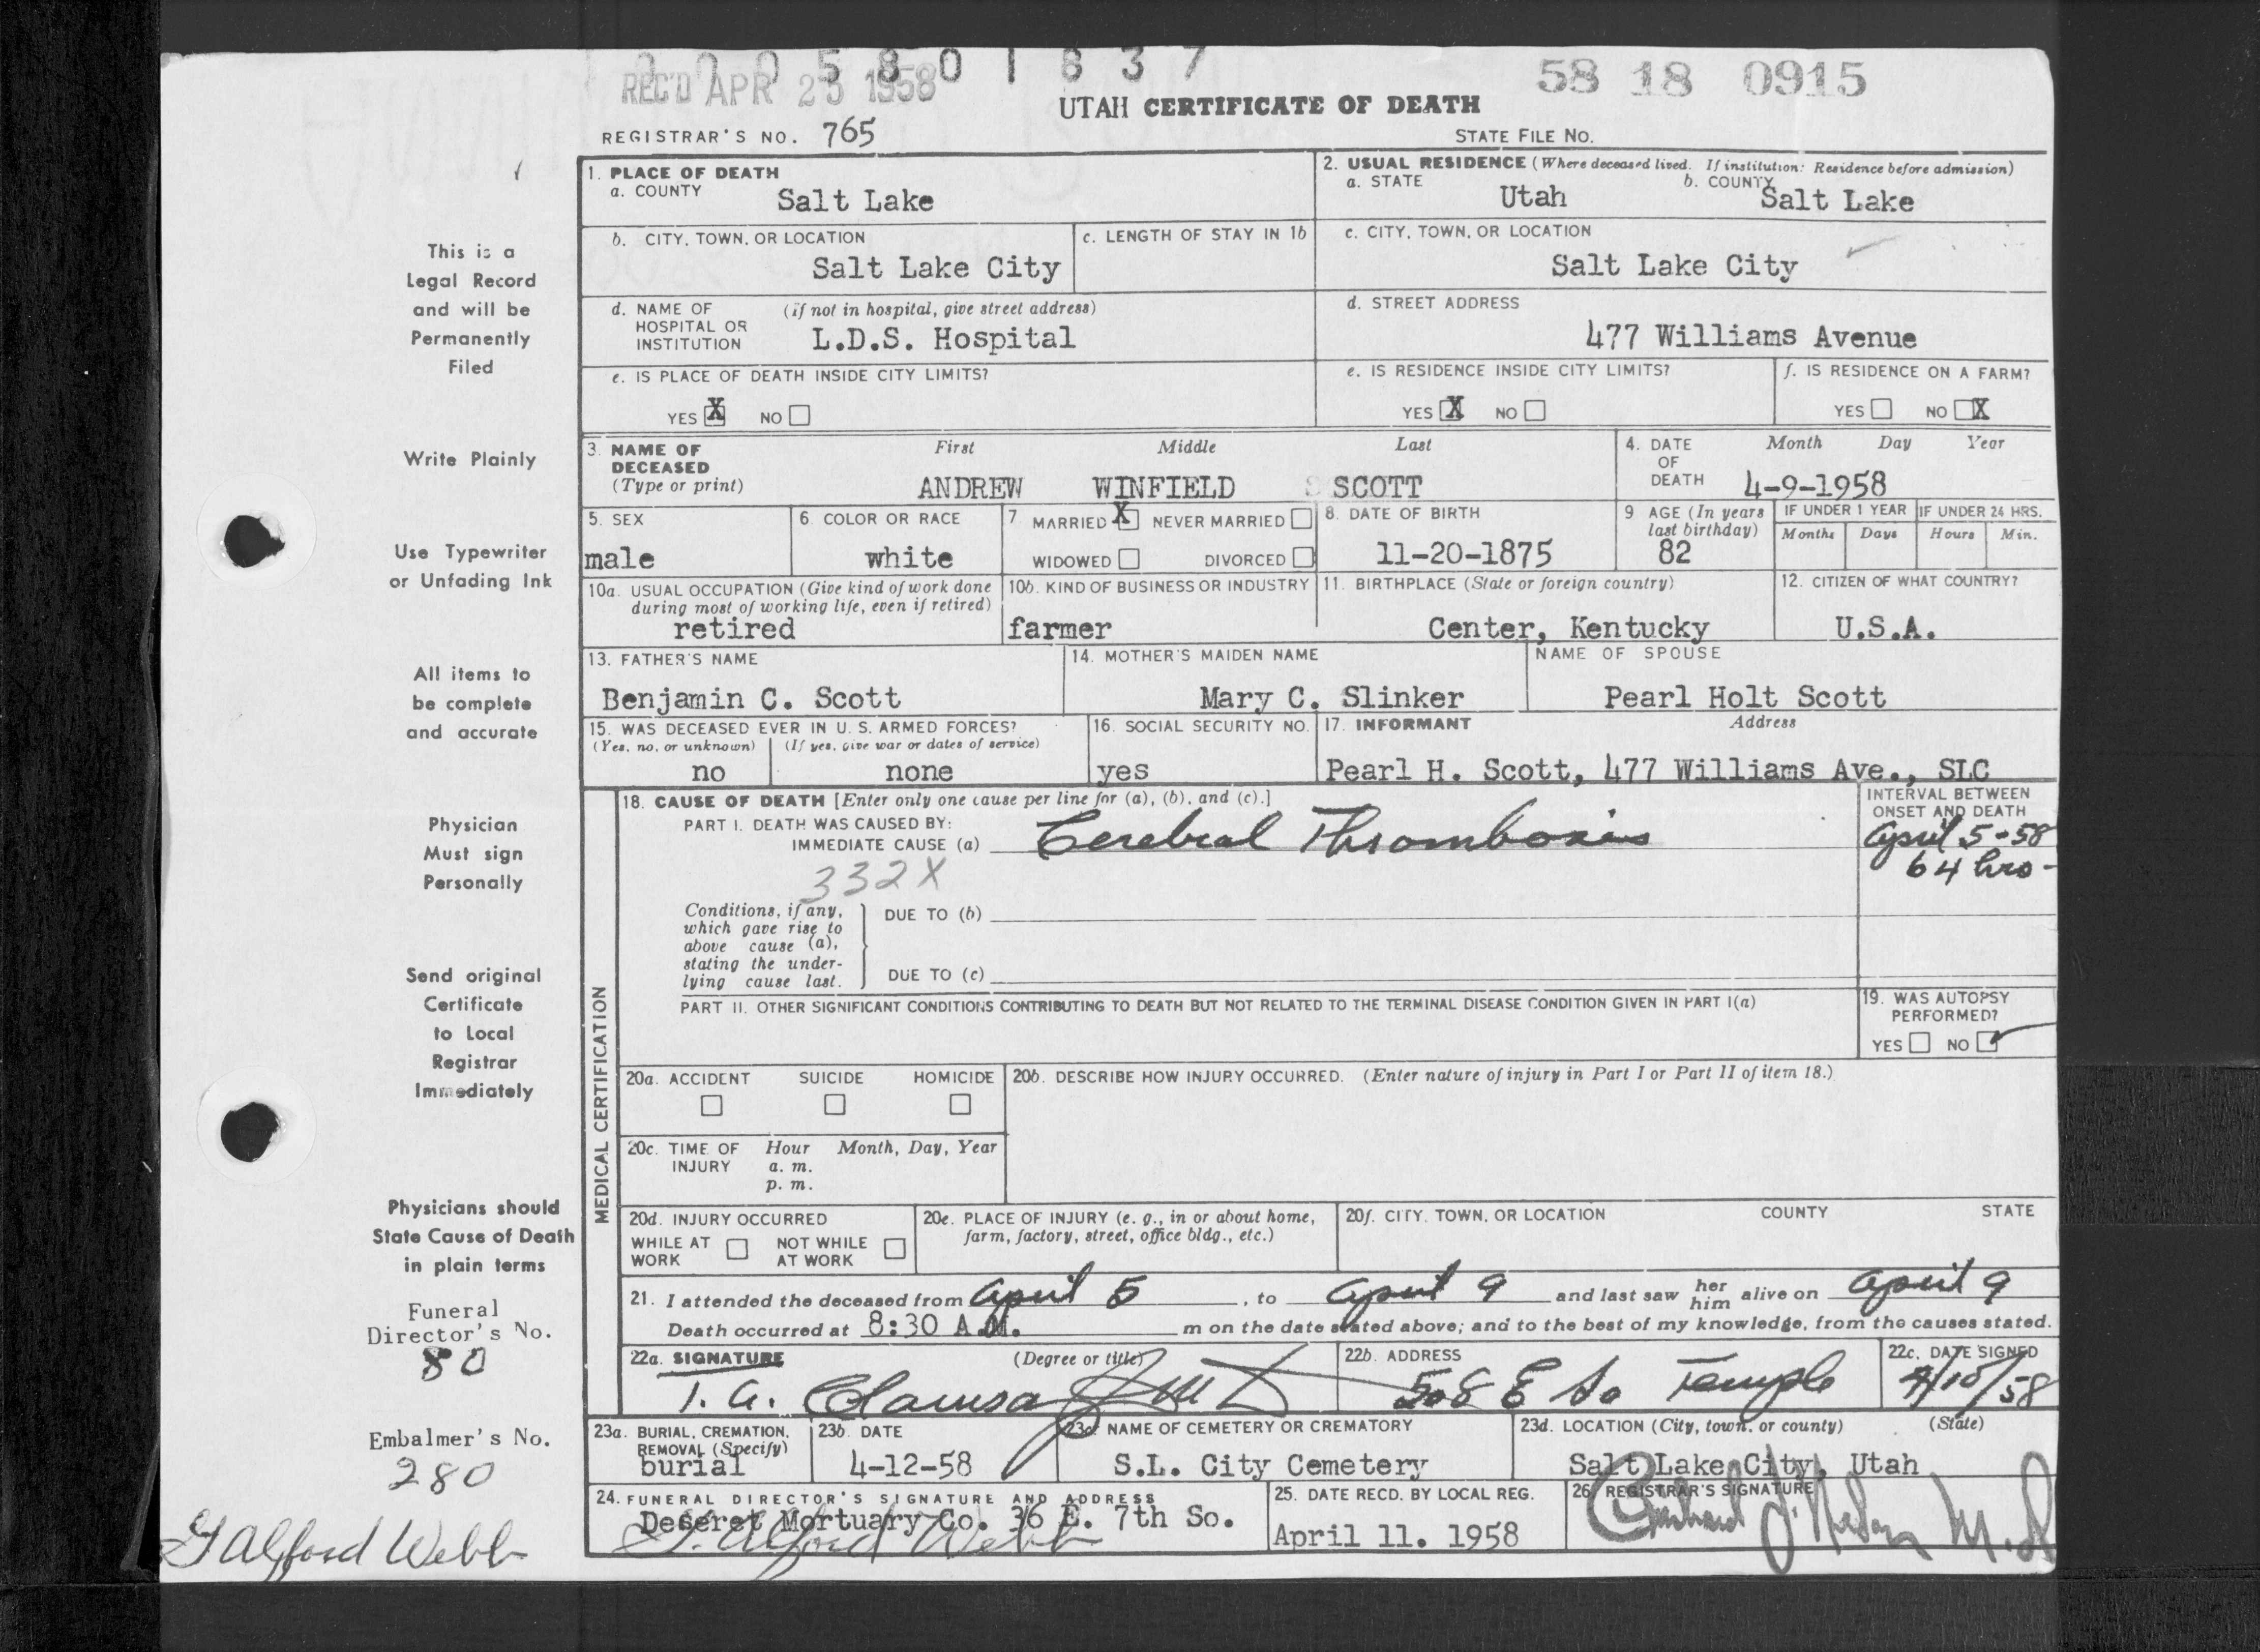 0 0 0 5 8 0 1 8 3 7
REC'D APR 23 1958
58 18 0915
UTAH CERTIFICATE OF DEATH
REGISTRAR'S NO. 765
STATE FILE NO.
This is a
Legal Record
and will be
Permanently
Filed
Write Plainly
Use Typewriter
or Unfading Ink
All items to
be complete
and accurate
Physician
Must sign
Personally
Send original
Certificate
to Local
Registrar
Immediately
Physicians should
State Cause of Death
in plain terms
Funeral
Director's No.
80
Embalmer's No.
280
G Alford Webb
1. PLACE OF DEATH
a. COUNTY
Salt Lake
2. USUAL RESIDENCE (Where deceased lived. If institution: Residence before admission)
a. STATE Utah b. COUNTY Salt Lake
b. CITY, TOWN, OR LOCATION
Salt Lake City
c. LENGTH OF STAY IN 1b
c. CITY, TOWN, OR LOCATION
Salt Lake City
d. NAME OF (if not in hospital, give street address)
HOSPITAL OR
INSTITUTION L.D.S. Hospital
d. STREET ADDRESS
477 Williams Avenue
e. IS PLACE OF DEATH INSIDE CITY LIMITS?
YES X NO
e. IS RESIDENCE INSIDE CITY LIMITS?
YES X NO
f. IS RESIDENCE ON A FARM?
YES NO X
3. NAME OF First Middle Last
DECEASED
(Type or print) ANDREW WINFIELD SCOTT
4. DATE Month Day Year
OF
DEATH 4-9-1958
5. SEX
male
6. COLOR OR RACE
white
7. MARRIED X NEVER MARRIED
WIDOWED DIVORCED
8. DATE OF BIRTH
11-20-1875
9 AGE (In years
last birthday)
82
IF UNDER 1 YEAR
Months Days
IF UNDER 24 HRS.
Hours Min.
10a. USUAL OCCUPATION (Give kind of work done
during most of working life, even if retired)
retired
10b. KIND OF BUSINESS OR INDUSTRY
farmer
11. BIRTHPLACE (State or foreign country)
Center, Kentucky
12. CITIZEN OF WHAT COUNTRY?
U.S.A.
13. FATHER'S NAME
Benjamin C. Scott
14. MOTHER'S MAIDEN NAME
Mary C. Slinker
NAME OF SPOUSE
Pearl Holt Scott
15. WAS DECEASED EVER IN U. S. ARMED FORCES?
(Yes, no, or unknown) (If yes, give war or dates of service)
no none
16. SOCIAL SECURITY NO.
yes
17. INFORMANT Address
Pearl H. Scott, 477 Williams Ave., SLC
MEDICAL CERTIFICATION
18. CAUSE OF DEATH [Enter only one cause per line for (a), (b), and (c).]
PART I. DEATH WAS CAUSED BY:
IMMEDIATE CAUSE (a) Cerebral Thrombosis
332X
INTERVAL BETWEEN
ONSET AND DEATH
April 5-58
64 hrs-
Conditions, if any,
which gave rise to
above cause (a),
stating the under-
lying cause last.
DUE TO (b)
DUE TO (c)
PART II. OTHER SIGNIFICANT CONDITIONS CONTRIBUTING TO DEATH BUT NOT RELATED TO THE TERMINAL DISEASE CONDITION GIVEN IN PART I(a)
19. WAS AUTOPSY
PERFORMED?
YES NO
20a. ACCIDENT SUICIDE HOMICIDE
20b. DESCRIBE HOW INJURY OCCURRED. (Enter nature of injury in Part I or Part II of item 18.)
20c. TIME OF Hour Month, Day, Year
INJURY a. m.
p. m.
20d. INJURY OCCURRED
WHILE AT NOT WHILE
WORK AT WORK
20e. PLACE OF INJURY (e. g., in or about home,
farm, factory, street, office bldg., etc.)
20f. CITY, TOWN, OR LOCATION COUNTY STATE
21. I attended the deceased from April 5, to April 9 and last saw her him alive on April 9
Death occurred at 8:30 A.M. m on the date stated above; and to the best of my knowledge, from the causes stated.
22a. SIGNATURE (Degree or title)
T. A. Clawson Jr M D
22b. ADDRESS
508 E So Temple
22c. DATE SIGNED
4/10/58
23a. BURIAL, CREMATION,
REMOVAL (Specify)
burial
23b. DATE
4-12-58
23c. NAME OF CEMETERY OR CREMATORY
S.L. City Cemetery
23d. LOCATION (City, town, or county) (State)
Salt Lake City, Utah
24. FUNERAL DIRECTOR'S SIGNATURE AND ADDRESS
Deseret Mortuary Co. 36 E. 7th So.
G. Alford Webb
25. DATE RECD. BY LOCAL REG.
April 11. 1958
26 REGISTRAR'S SIGNATURE
M.D